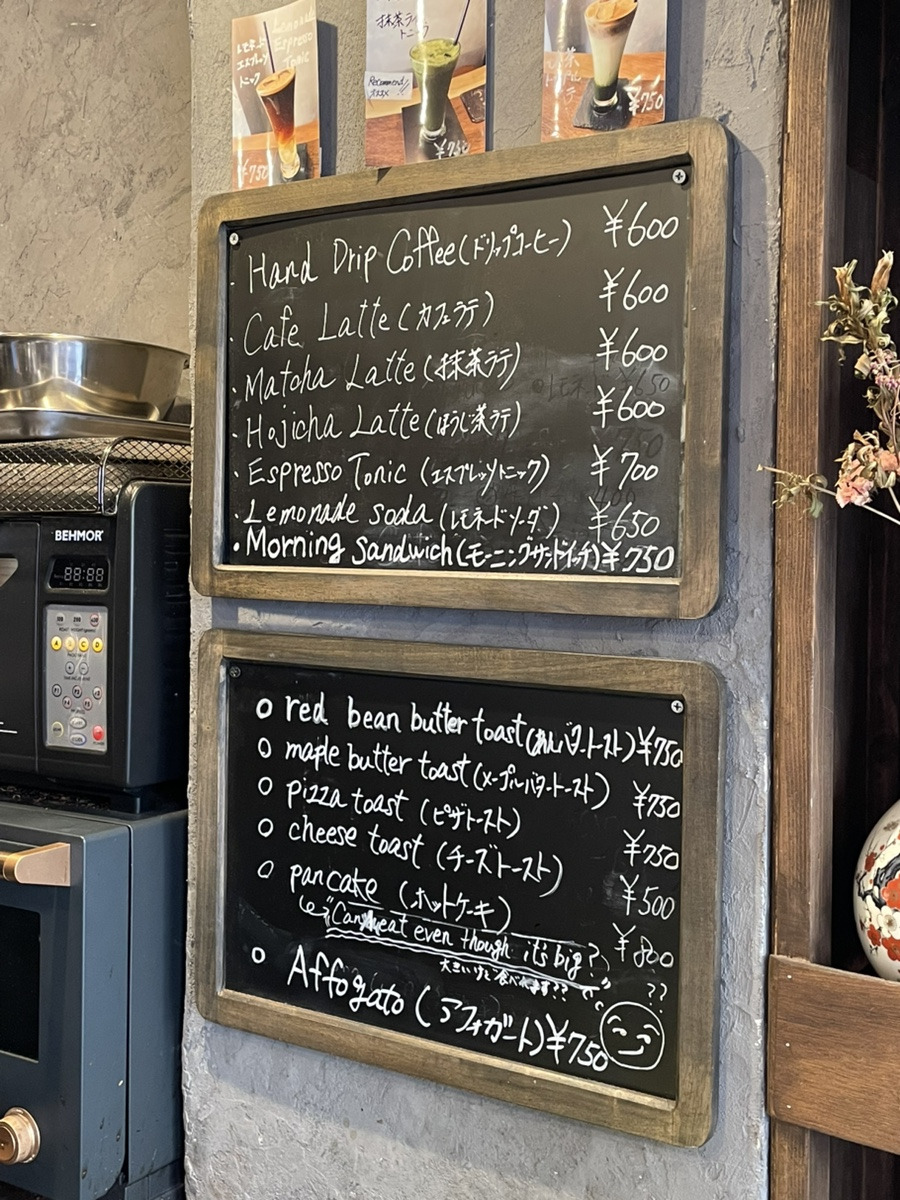 Lemonade
Espresso
Tonic
エスプレッソ
トニック
¥750
抹茶ライム
トニック
Recommend!!
オススメ
¥750
¥750
・Hand Drip Coffee(ドリップコーヒー) ¥600
・Cafe Latte(カフェラテ) ¥600
・Matcha Latte(抹茶ラテ) ¥600
・Hojicha Latte(ほうじ茶ラテ) ¥600
・Espresso Tonic (エスプレッソトニック) ¥700
・Lemonade soda (レモネードソーダ) ¥650
・Morning Sandwich(モーニングサンドイッチ)¥750
BEHMOR
88:88
○ red bean butter toast(あんバタートースト)¥750
○ maple butter toast(メープルバタートースト) ¥750
○ pizza toast (ピザトースト) ¥750
○ cheese toast (チーズトースト) ¥500
○ pancake (ホットケーキ) ¥800
"Can u eat even though it's big?" ??
大きいけど食べれます??
○ Affogato (アフォガート)¥750